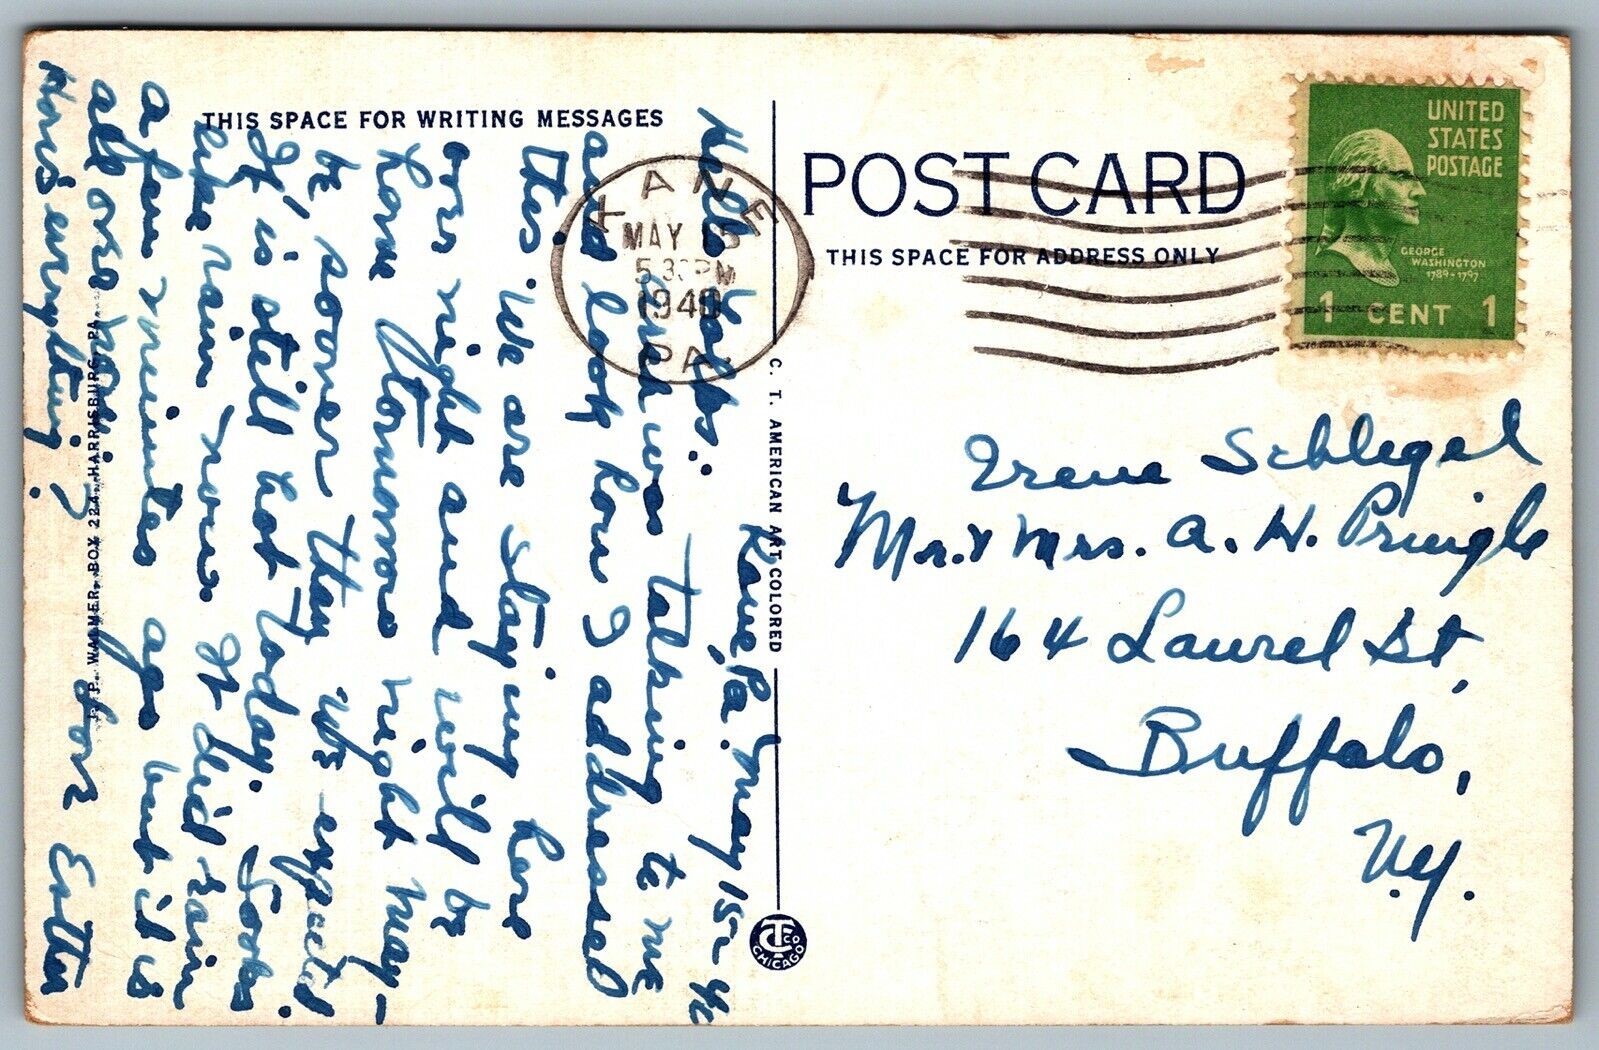 THIS SPACE FOR WRITING MESSAGES
Kane, Pa. May 15-40
Hello Folks:
was talking to me
and look how I addressed
this. We are staying here
over night and will be
home tomorrow night may-
be sooner than we expected.
It's still hot today. Looks
like rain now. It did rain
a few minutes ago but it is
all over now.
How's everything?
Love Etta
J. P. WALMER, BOX 224, HARRISBURG, PA.
C. T. AMERICAN ART COLORED
CTCO CHICAGO
POST CARD
THIS SPACE FOR ADDRESS ONLY
KANE
MAY 15
5 3 PM
1940
PA.
UNITED
STATES
POSTAGE
GEORGE
WASHINGTON
1789-1797
1 CENT 1
Irene Schlegel
Mr. & Mrs. A. W. Pringle
164 Laurel St,
Buffalo,
N.Y.